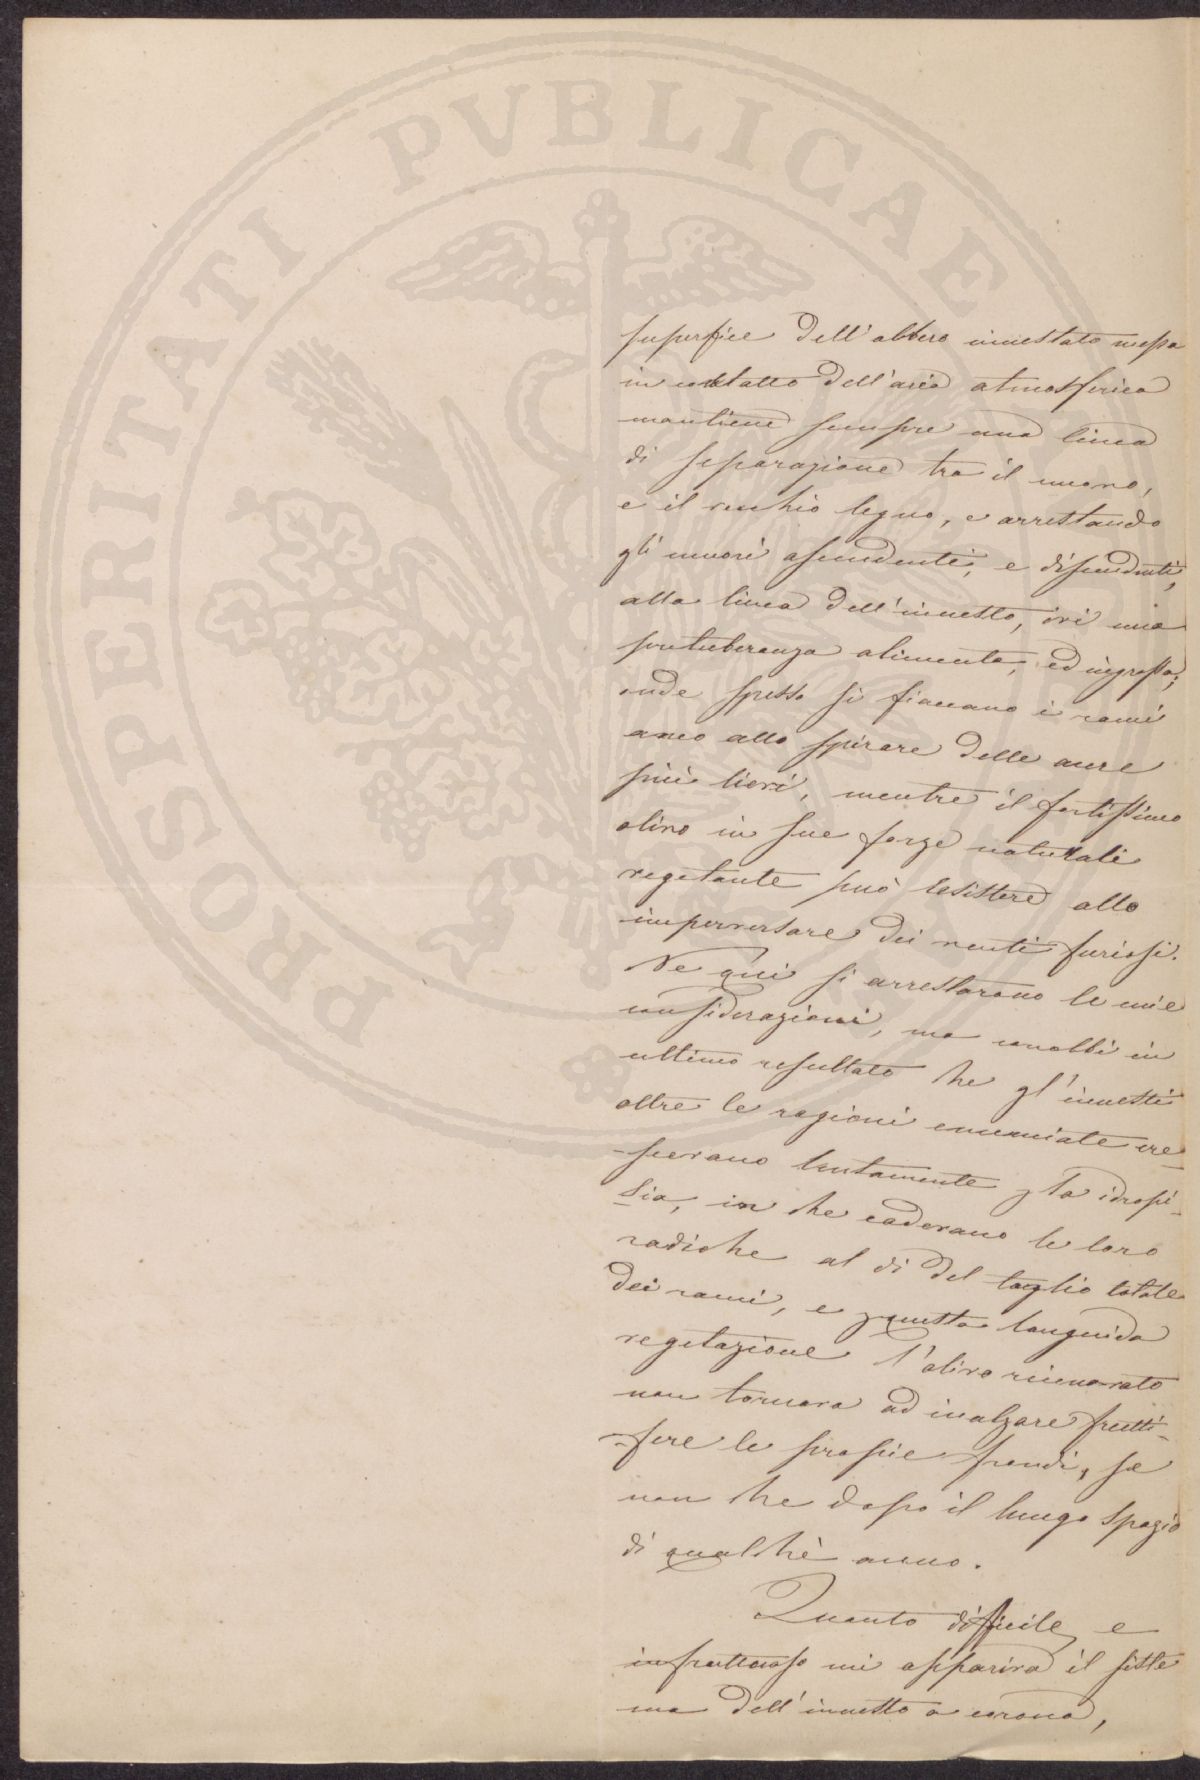 superfice dell'albero innestato messa
in contatto dell'aria atmosferica
mantiene sempre una linea
di separazione tra il nuovo,
e il vecchio legno, e arrestando
gli umori ascendenti, e discendenti,
alla linea dell'innesto, ivi una
protuberanza alimenta, ed ingrossa;
onde spesso si fiaccano i rami
anco allo spirare delle aure
più lievi, mentre il fortissimo
olivo in sue forze naturali
vegetante può resistere allo
imperversare dei venti furiosi.
Ne qui si arrestarono le mie
considerazioni, ma conobbi in
ultimo resultato che gl'innesti
oltre le ragioni enunciate cre-
-scevano lentamente p la idropi-
sia, in che cadevano le loro
radiche al dì del taglio totale
dei rami, e p questa languida
vegetazione l'olivo rinnovato
non tornava ad inalzare frutti-
-fere le proprie frondi, se
non che dopo il lungo spazio
di qualchè anno.
Quanto difficile, e
infruttuoso mi appariva il siste
ma dell'innesto a corona,
PROSPERITATI PVBLICAE